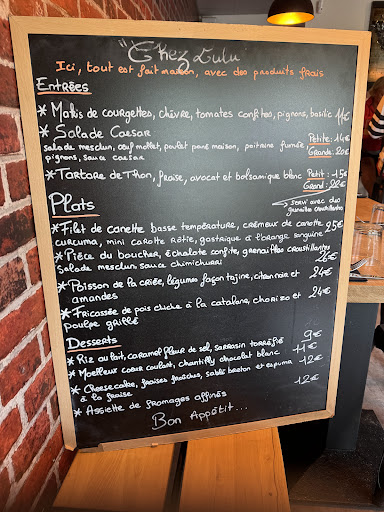 "Chez Lulu
Ici, tout est fait maison, avec des produits frais
Entrées
* Makis de courgettes, chèvre, tomates confites, pignons, basilic 11€
* Salade Caesar
salade mesclun, oeuf mollet, poulet pané maison, poitrine fumée, Petite: 14€
pignons, sauce caesar Grande: 20€
* Tartare de Thon, fraise, avocat et balsamique blanc Petit: 15€
Grand: 22€
Plats
servi avec des
grenailles croustillantes
* Filet de canette basse température, crémeux de carotte 25€
curcuma, mini carotte rôtie, gastrique à l'orange sanguine
* Pièce du boucher, échalote confite, grenailles croustillantes 26€
Salade mesclun sauce chimichurri
* Poisson de la criée, légumes façon tajine, citron noir et 24€
amandes
* Fricassée de pois chiche à la catalane, chorizo et 24€
poulpe grillé
Desserts
* Riz au lait, caramel fleur de sel, sarrasin torréfié 9€
* Moelleux coeur coulant, chantilly chocolat blanc 11€
* Cheesecake, fraises fraîches, sablé breton et espuma 12€
à la fraise
* Assiette de fromages affinés 12€
Bon Appétit...